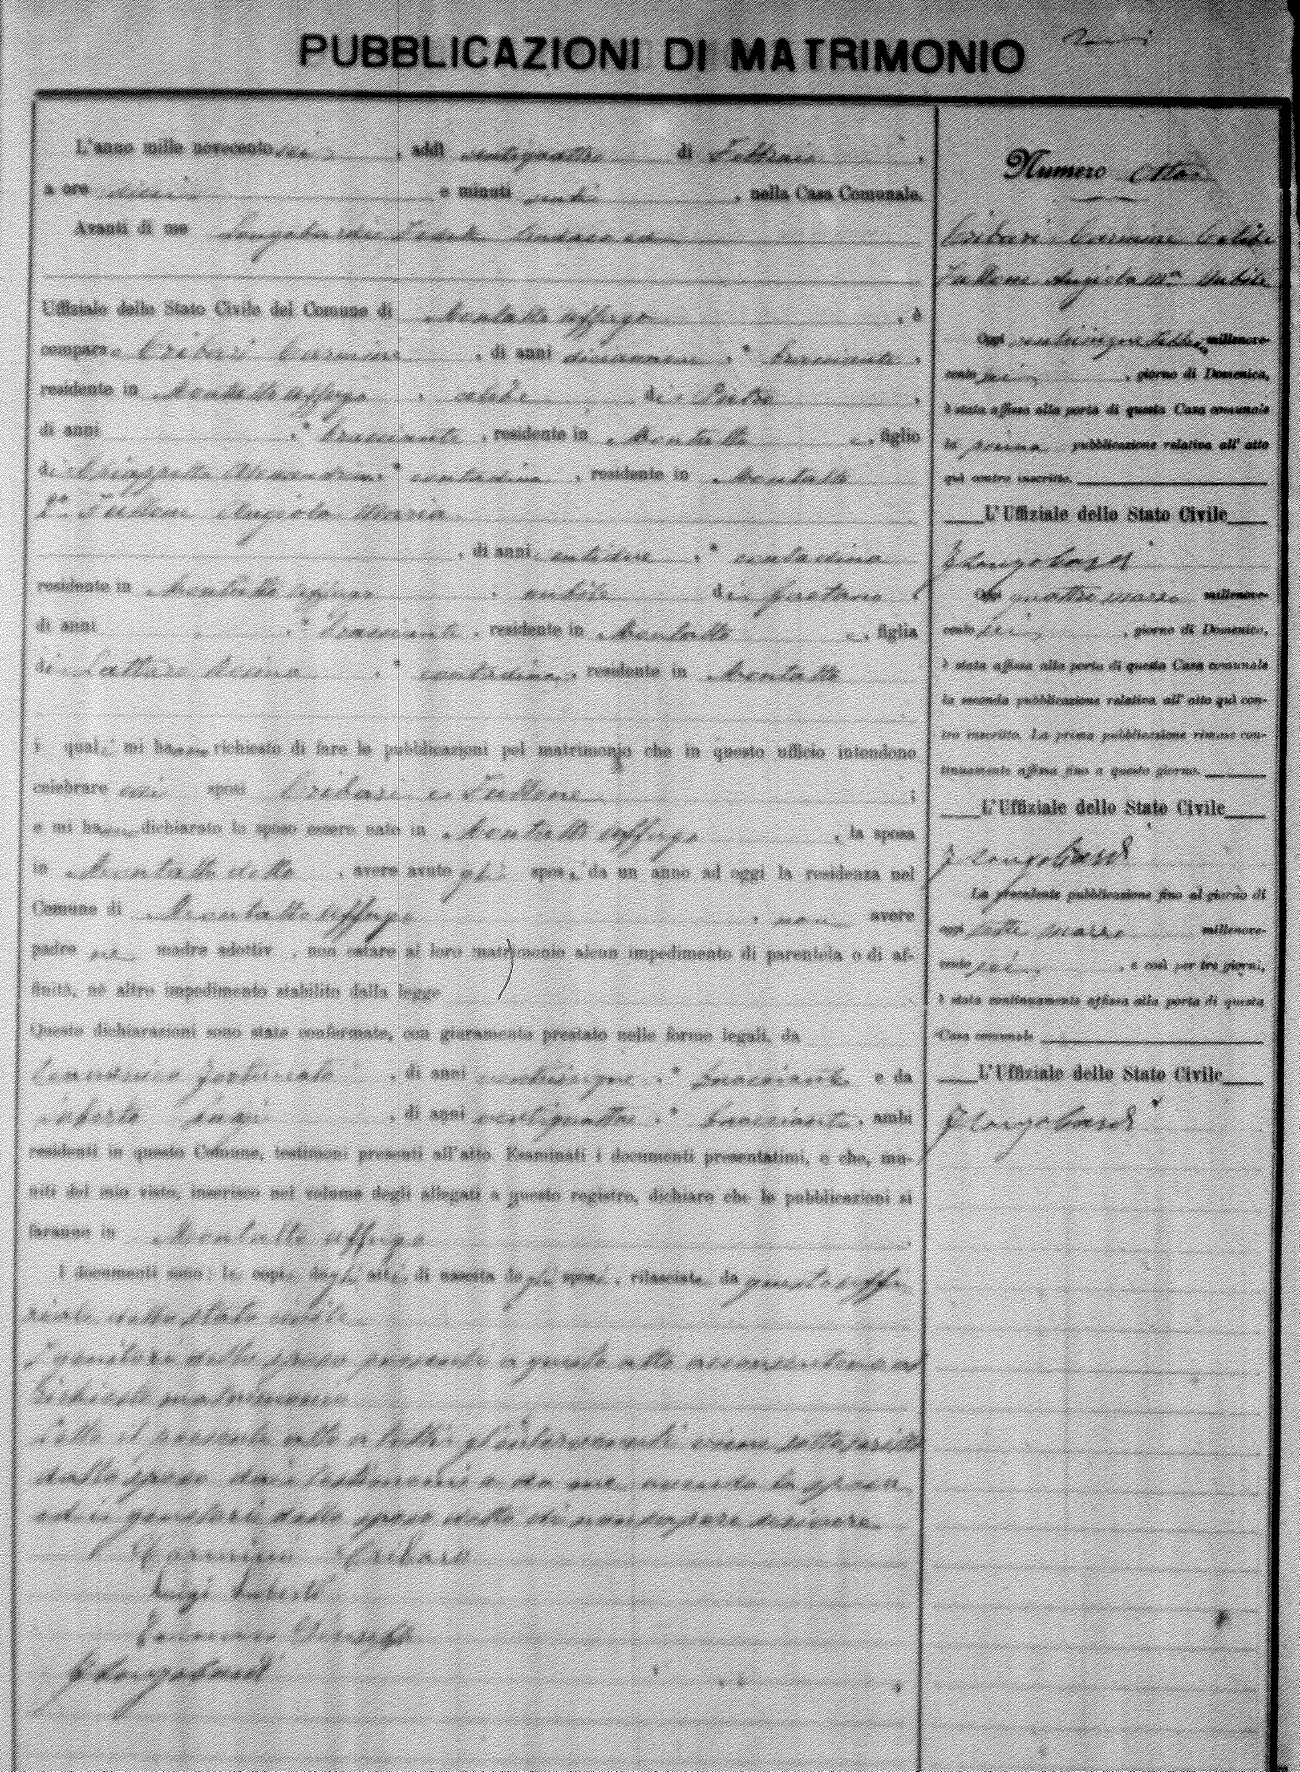 PUBBLICAZIONI DI MATRIMONIO
L'anno mille novecento sei, addì ventiquattro di Febbraio,
a ore dieci e minuti venti, nella Casa Comunale.
Avanti di me Longobardi Sindaco ed
Uffiziale dello Stato Civile del Comune di Montalto Uffugo, è
comparso Cribari Carmine, di anni diciannove, bracciante,
residente in Montalto Uffugo, celibe di Pietro,
di anni , bracciante, residente in Montalto, figlio
di Chiappetta Alessandrina, contadina, residente in Montalto
2º Fullone Angiola Maria
, di anni ventidue, contadina
residente in Montalto Uffugo, nubile di Gaetano,
di anni , bracciante, residente in Montalto, figlia
di , contadina, residente in Montalto
i quali mi hanno richiesto di fare le pubblicazioni pel matrimonio che in questo ufficio intendono
celebrare essi sposi Cribari e Fullone;
e mi hanno dichiarato lo sposo essere nato in Montalto Uffugo, la sposa
in Montalto detto, avere avuto gli sposi da un anno ad oggi la residenza nel
Comune di Montalto Uffugo, non avere
padre nè madre adottiv , non ostare al loro matrimonio alcun impedimento di parentela o di af-
finità, nè altro impedimento stabilito dalla legge
Queste dichiarazioni sono state confermate, con giuramento prestato nelle forme legali, da
, di anni venticinque, bracciante e da
Luberto Luigi, di anni ventiquattro, bracciante, ambi
residenti in questo Comune, testimoni presenti all'atto. Esaminati i documenti presentatimi, e che, mu-
niti del mio visto, inserisco nel volume degli allegati a questo registro, dichiaro che le pubblicazioni si
faranno in Montalto Uffugo.
I documenti sono: le copie degli atti di nascita degli sposi, rilasciate da questo uffi
ziale dello stato civile
I genitori dello sposo presenti a questo atto acconsentono al
richiesto matrimonio
Letto il presente atto a tutti gl'intervenuti viene sottoscritto
dallo sposo dai testimoni e da me avendo la sposa
ed i genitori dello sposo detto di non sapere scrivere
Carmine Cribari
Luigi Luberto
F Longobardi
Numero Otto
Cribari Carmine Celibe
Fullone Angiola Mª Nubile
Oggi venticinque Febbraio millenove-
cento sei, giorno di Domenica,
è stata affissa alla porta di questa Casa comunale
la prima pubblicazione relativa all'atto
quì contro inscritto.
L'Uffiziale dello Stato Civile
F Longobardi
Oggi quattro marzo millenove-
cento sei, giorno di Domenica,
è stata affissa alla porta di questa Casa comunale
la seconda pubblicazione relativa all'atto quì con-
tro inscritto. La prima pubblicazione rimase con-
tinuamente affissa fino a questo giorno.
L'Uffiziale dello Stato Civile
F Longobardi
La precedente pubblicazione fino al giorno di
oggi sette marzo millenove-
cento sei, e così per tre giorni,
è stata continuamente affissa alla porta di questa
Casa comunale
L'Uffiziale dello Stato Civile
F Longobardi